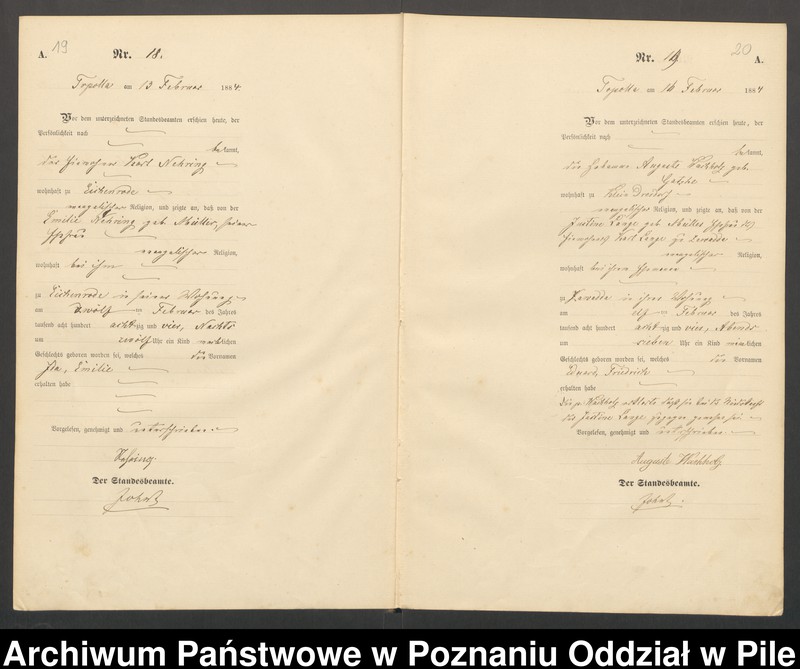 A. 19 Nr. 18.
am 13 Februar 1884.
Vor dem unterzeichneten Standesbeamten erschien heute, der
Persönlichkeit nach
bekannt,
der Karl Nehring
wohnhaft zu Eichenrode
evangelischer Religion, und zeigte an, daß von der
Emilie Nehring geb. seiner
Ehefrau
evangelischer Religion,
wohnhaft bei ihm
zu Eichenrode in seiner Wohnung
am zwölf ten Februar des Jahres
tausend acht hundert achtzig und vier, Nachts
um zwölf Uhr ein Kind weiblichen
Geschlechts geboren worden sei, welches die Vornamen
Ida, Emilie
erhalten habe
Vorgelesen, genehmigt und unterschrieben
Nehring
Der Standesbeamte.
Nr. 19. 20 A.
am 16 Februar 1884
Vor dem unterzeichneten Standesbeamten erschien heute, der
Persönlichkeit nach
bekannt,
die Hebamme Auguste Wachholz geb.
wohnhaft zu Klein
evangelischer Religion, und zeigte an, daß von der
Justine Lange geb. Ehefrau des
Karl Lange zu
evangelischer Religion,
wohnhaft bei ihrem Ehemanne
zu in ihrer Wohnung
am elf ten Februar des Jahres
tausend acht hundert achtzig und vier, Abends
um sieben Uhr ein Kind männlichen
Geschlechts geboren worden sei, welches die Vornamen
Eduard, Friedrich
erhalten habe
Die p. Wachholz erklärte daß sie bei der Niederkunft
der Justine Lange zugegen gewesen sei
Vorgelesen, genehmigt und unterschrieben
Auguste Wachholz
Der Standesbeamte.
Archiwum Państwowe w Poznaniu Oddział w Pile